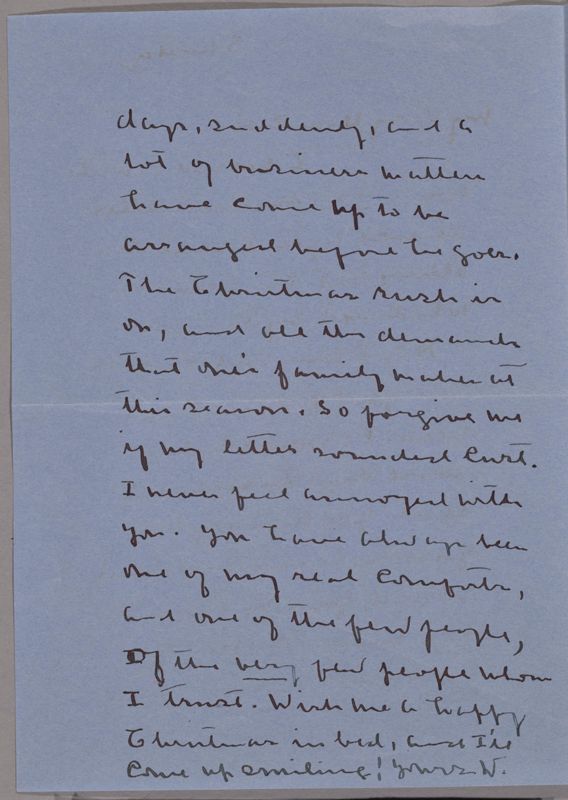 days, suddenly, and a
lot of business matters
have come up to be
arranged before he goes.
The Christmas rush is
on, and all the demands
that one's family makes at
this season. So forgive me
if my letter sounded curt.
I never feel annoyed with
you. You have always been
one of my real comforts,
and one of the few people,
Of the very few people whom
I trust. Wish me a happy
Christmas in bed, and I'll
come up smiling! Yours W.